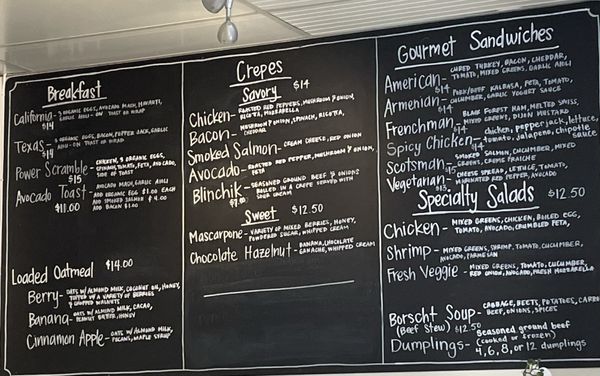 Breakfast
California - 3 organic eggs, avocado mash, havarti,
garlic aioli - on toast or wrap
$14
Texas - 3 organic eggs, bacon, pepper jack, garlic
aioli - on toast or wrap
$14
Power Scramble - chicken, 3 organic eggs,
spinach, tomato, feta, avocado,
side of toast
$15
Avocado Toast - avocado mash, garlic aioli
add organic egg $1.00 each
add smoked salmon $4.00
add bacon $1.00
$11.00
Loaded Oatmeal $14.00
Berry - oats w/ almond milk, coconut oil, honey,
topped w/ a variety of berries
& chopped walnuts
Banana - oats w/ almond milk, cacao,
peanut butter, honey
Cinnamon Apple - oats w/ almond milk,
pecans, maple syrup
Crepes
Savory $14
Chicken - roasted red peppers, mushroom & onion,
ricotta, mozzarella
Bacon - mushroom & onion, spinach, ricotta,
cheddar
Smoked Salmon - cream cheese, red onion
Avocado - roasted red pepper, mushroom & onion,
feta
Blinchik - seasoned ground beef & onions
rolled in a crepe served with
sour cream
Sweet $12.50
Mascarpone - variety of mixed berries, honey,
powdered sugar, whipped cream
Chocolate Hazelnut - banana, chocolate
ganache, whipped cream
Gourmet Sandwiches
American - cured turkey, bacon, cheddar,
tomato, mixed greens, garlic aioli
$14
Armenian - pork/beef kalbasa, feta, tomato,
cucumber, garlic yogurt sauce
$14
Frenchman - black forest ham, melted swiss,
mixed greens, dijon mustard
$14
Spicy Chicken - chicken, pepper jack, lettuce,
tomato, jalapeno, chipotle
sauce
$14
Scotsman - smoked salmon, cucumber, mixed
greens, creme fraiche
$15
Vegetarian - cheese spread, lettuce, tomato,
marinated red pepper, avocado
Specialty Salads $12.50
Chicken - mixed greens, chicken, boiled egg,
tomato, avocado, crumbled feta,
Shrimp - mixed greens, shrimp, tomato, cucumber,
avocado, parmesan
Fresh Veggie - mixed greens, tomato, cucumber,
red onion, avocado, fresh mozzarella
Borscht Soup - cabbage, beets, potatoes, carro
beef, onions, spices
(Beef Stew) $12.50
Dumplings - Seasoned ground beef
(cooked or frozen)
4, 6, 8, or 12 dumplings